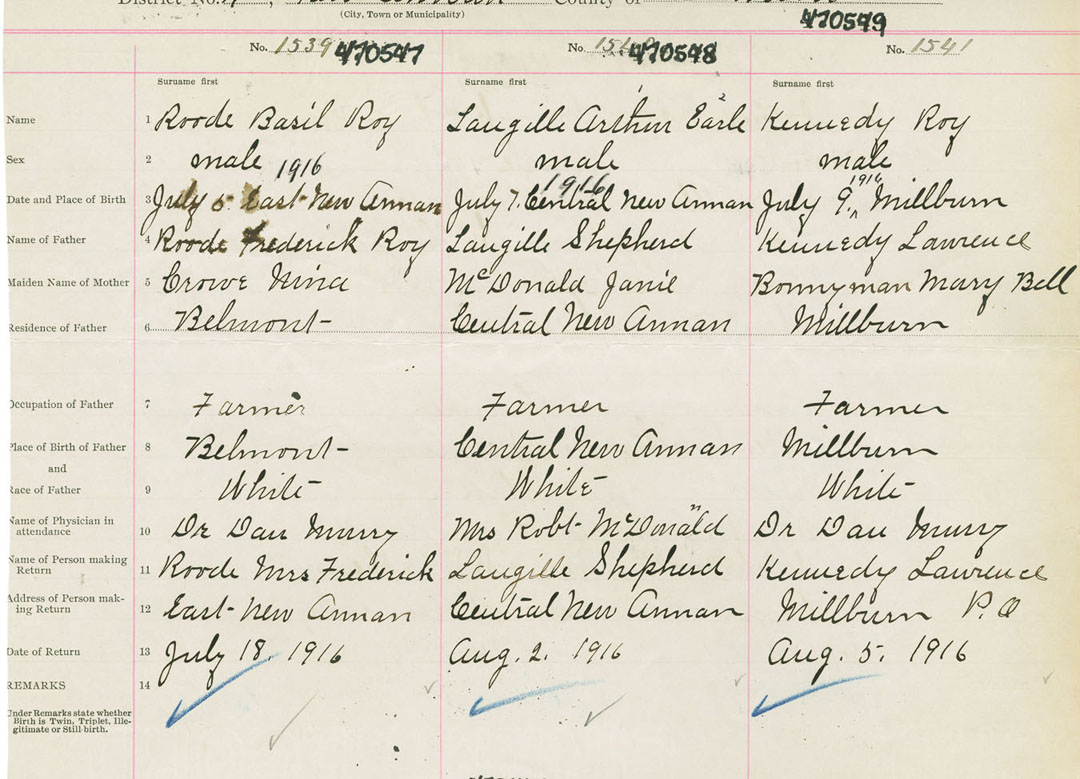 District No. County of
(City, Town or Municipality)
470549
No. 1539 470547 No. 470548 No. 1541
Surname first Surname first Surname first
Name 1 Roode Basil Roy Langille Arthur Earle Kennedy Roy
Sex 2 male male male
1916 1916 1916
Date and Place of Birth 3 July 5 East New Annan July 7. Central New Annan July 9, Millburn
Name of Father 4 Roode Frederick Roy Langille Shepherd Kennedy Lawrence
Maiden Name of Mother 5 Crowe Nina McDonald Janie Bonnyman Mary Bell
Residence of Father 6 Belmont Central New Annan Millburn
Occupation of Father 7 Farmer Farmer Farmer
Place of Birth of Father 8 Belmont Central New Annan Millburn
and
Race of Father 9 White White White
Name of Physician in
attendance 10 Dr Dan Murry Mrs Robt McDonald Dr Dan Murry
Name of Person making
Return 11 Roode Mrs Frederick Langille Shepherd Kennedy Lawrence
Address of Person mak-
ing Return 12 East New Annan Central New Annan Millburn P.O
Date of Return 13 July 18, 1916 Aug. 2. 1916 Aug. 5. 1916
REMARKS 14
Under Remarks state whether
Birth is Twin, Triplet, Ille-
gitimate or Still birth.